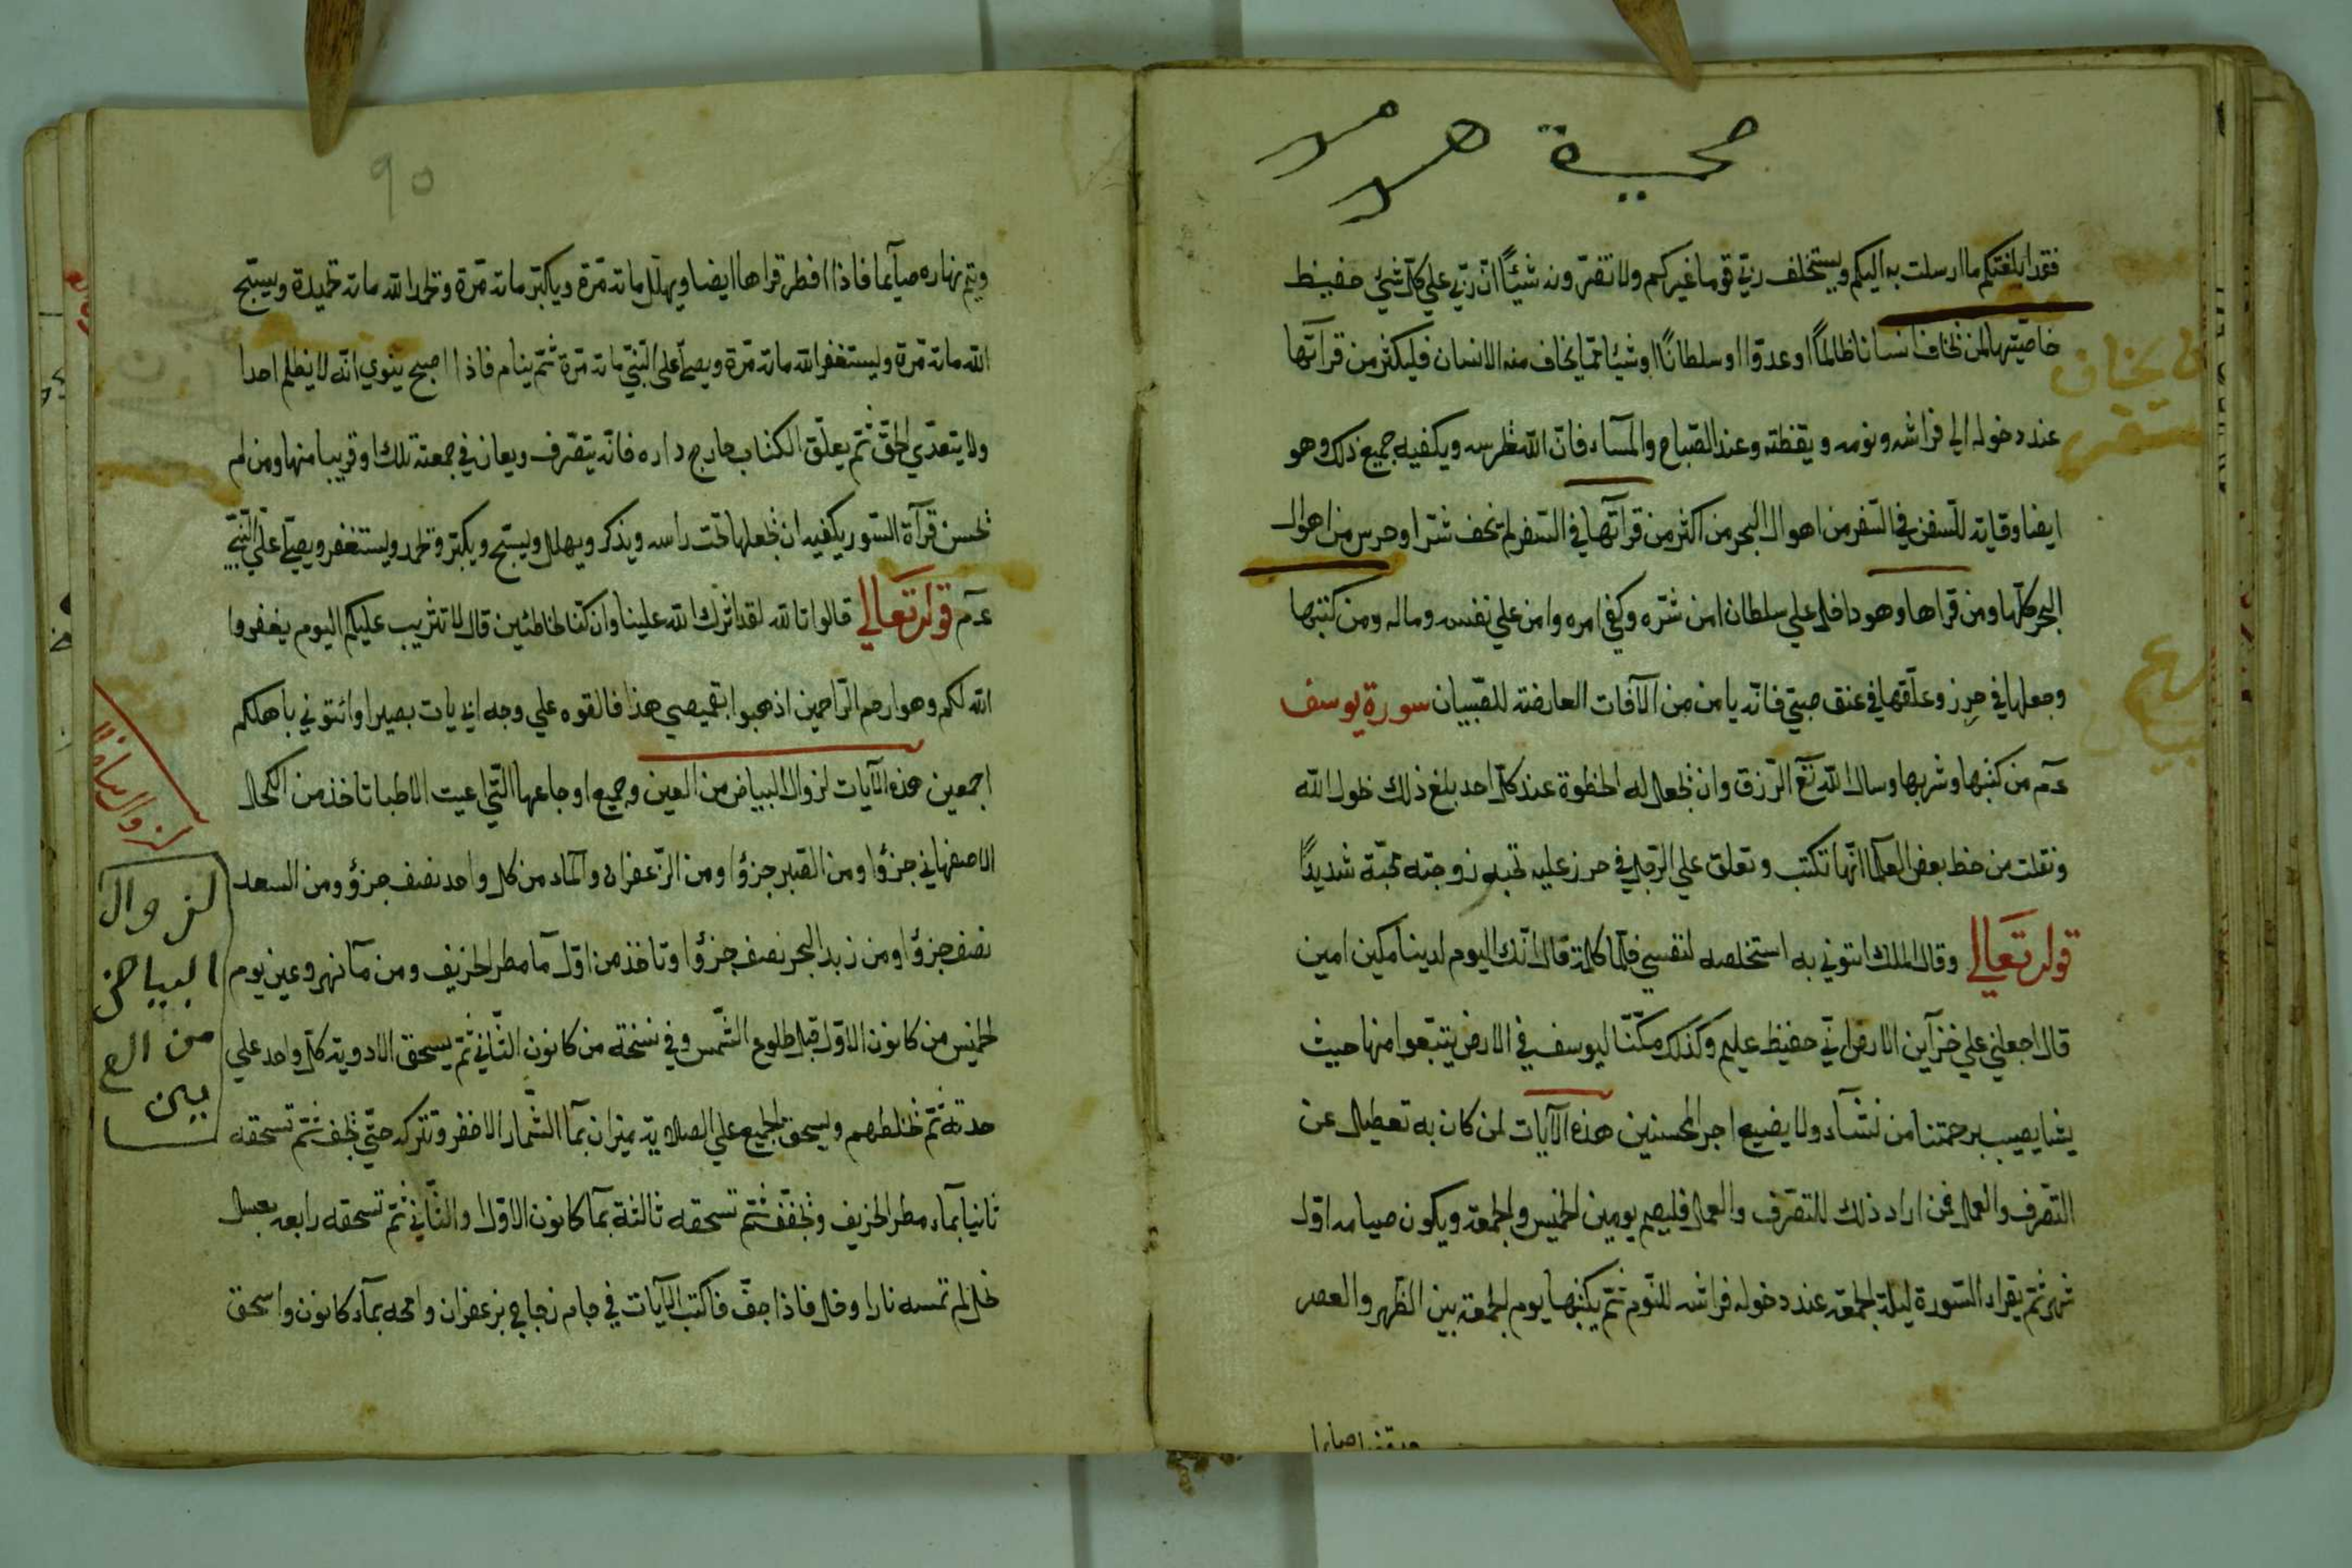 محبة
فقد ابلغتكم ما ارسلت به اليكم ويستخلف ربي قوما غيركم ولا تضرونه شيئًا ان ربي علي كل شئ حفيظ
خاصيتها لمن يخاف انسانا ظالمًا او عدوا او سلطانًا او شيئا مما يخاف منه الانسان فليكثر من قراتها
عند دخوله الي فراشه ونومه ويقظته وعند الصباح والمسآء فان الله يحرسه ويكفيه جميع ذلك وهو
ايضا وقايه للسفن في السفر من اهوال البحر من اكثر من قراتها في السفر لم يخف شرا وحرس من اهوال
البحر كلها ومن قراها وهو داخل علي سلطان امن شره وكفي امره وامن علي نفسه وماله ومن كتبها
وجعلها في حرز وعلقها في عنق صبي فانه يامن من الآفات العارضة للصبيان سورة يوسف
عم من كتبها وشربها وسال الله تع الرزق وان يجعل له الحظوة عند كل احد بلغ ذلك بحول الله
ونقلت من خط بعض العلما انها تكتب وتعلق علي الرجل في حرز عليه تحبه زوجته محبة شديدًا
قوله تعالي وقال الملك ائتوني به استخلصه لنفسي فلما كلمة قال انك اليوم لدينا مكين امين
قال اجعلني علي خزآين الارض اني حفيظ عليم وكذلك مكنّا ليوسف في الارض يتبعوا منها حيث
يشا يصيب برحمتنا من نشآء ولا يضيع اجر المحسنين هذه الآيات لمن كان به تعطيل عن
التصرف والعمل فمن اراد ذلك للتصرف والعمل فليصم يومين الخميس والجمعة ويكون صيامه اول
شهر ثم يقراء السورة ليلة الجمعة عند دخوله فراشه للنوم ثم يكتبها يوم الجمعة بين الظهر والعصر
لمن يخاف
٩٥
ويتم نهاره صآيما فاذا افطر قراها ايضا ويهلل مائة مرة ويكبر مائة مرة وتحمد الله مائة تحميدة ويسبح
الله مائة مرة وليستغفر الله مائة مرة ويصل علي النبي مائة مرة ثم ينام فاذا اصبح ينوي انه لا يظلم احدا
ولا يتعدي الحق ثم يعلق الكتاب خارج داره فانه يتصرف ويعان في جمعته تلك او قريبا منها ومن لم
يحسن قرآة السور يكفيه ان يجعلها تحت راسه ويذكر ويهلل ويسبح ويكبر ويحمد ويستغفر ويصل علي النبي
عم قوله تعالي قالوا تالله لقد اثرك الله علينا وان كنا لخاطئين قال لا تثريب عليكم اليوم يغفروا
الله لكم وهو ارحم الراحمين اذهبوا بقميصي هذا فالقوه علي وجه ابي يات بصيرا وائتوني باهلكم
اجمعين هذه الآيات لزوال البياض من العين وجميع اوجاعها التي اعيت الاطبا تاخذ من الكحل
الاصفهاني جزؤا ومن الصبر جزؤا ومن الزعفران والماء من كل واحد نصف جزؤ ومن السعد
نصف جزؤا ومن زبد البحر نصف جزؤا وتاخذ من اول مآ مطر الخريف ومن مآ نهر وعين يوم
الخميس من كانون الاول قبل طلوع الشمس وفي نسخة من كانون الثاني ثم يسحق الادوية كل واحد علي
حدته ثم تخلطهم وليسحق الجميع علي الصلاية بميزان بمآ الشمار الاخضر وتتركه حتي يجف ثم تسحقه
ثانيا بمآء مطر الخريف وتجفف ثم تسحقه ثالثة بمآ كانون الاول والثاني ثم تسحقه رابعه بعسل
نحل لم تمسه نارا وخل فاذا جف فاكتب الآيات في جام زجاج بزعفران وامحه بمآء كانون واسحق
لزوال البياض
لزوال
البياض
من الع
يين